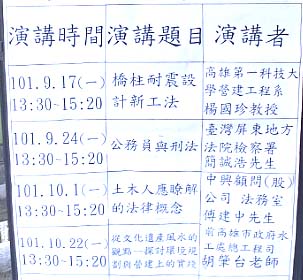 演講時間 演講題目 演講者
101.9.17(一)
13:30~15:20
橋柱耐震設
計新工法
高雄第一科技大
學營建工程系
楊國珍教授
101.9.24(一)
13:30~15:20
公務員與刑法
臺灣屏東地方
法院檢察署
簡誠浩先生
101.10.1(一)
13:30~15:20
土木人應瞭解
的法律概念
中興顧問(股)
公司 法務室
傅建中先生
101.10.22(一)
13:30~15:20
從文化遺產風水的
觀點—探討環境規
劃與營建上的實踐
前高雄市政府水
工處總工程司
胡肇台老師